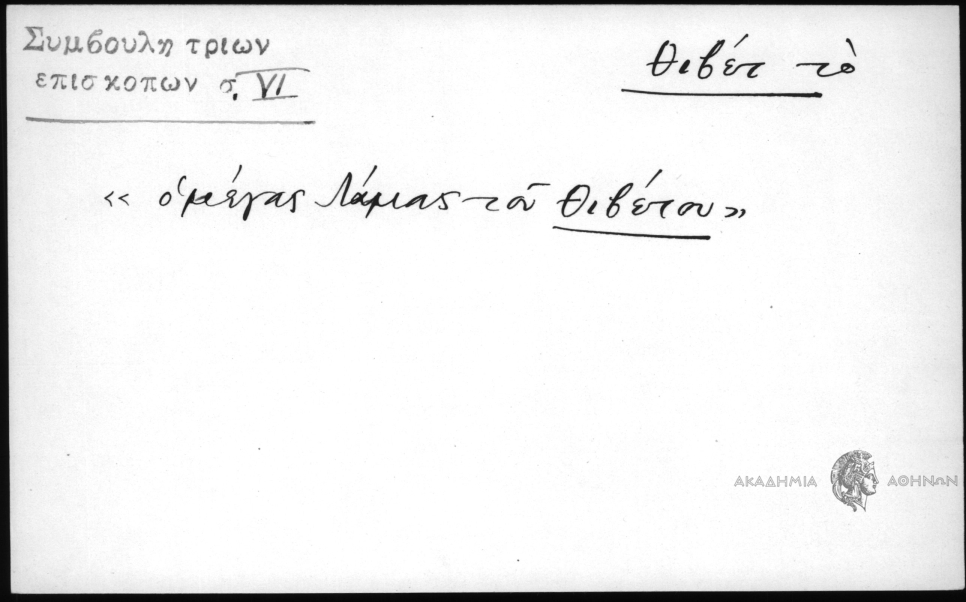 Συμβουλη τριων
επισκοπων σ. VI
Θιβέτ τὸ
«ὁ μέγας Λάμας τοῦ Θιβέτου»
ΑΚΑΔΗΜΙΑ ΑΘΗΝΩΝ